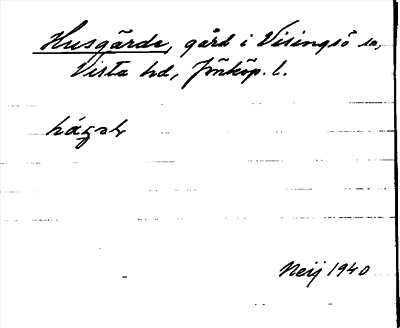 Husgärde, gård i Visingsö sn,
Vista hd, Jönköp. l.
Neij 1940